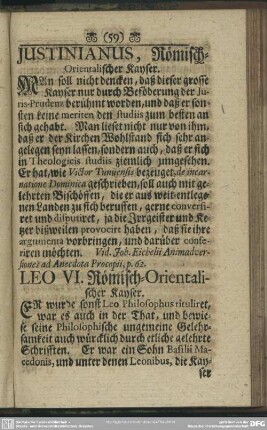 (59)
JUSTINIANUS, Römisch-
Orientalischer Kayser.
MAn soll nicht dencken, daß dieser grosse
Kayser nur durch Beförderung der Ju-
ris-Prudenz berühmt worden, und daß er son-
sten keine meriten den studiis zum besten an
sich gehabt. Man lieset nicht nur von ihm,
daß er der Kirchen Wohlstand sich sehr an-
gelegen seyn lassen, sondern auch, daß er sich
in Theologicis studiis ziemlich umgesehen.
Er hat, wie Victor Tunnensis bezeuget, de incar-
natione Dominica geschrieben, soll auch mit ge-
lehrten Bischöffen, die er aus weit entlegs-
nen Landen zu sich beruffen, gerne conversi-
ret und disputiret, ja die Irrgeister und Ke-
tzer bißweilen provocirt haben, daß sie ihre
argumenta vorbringen, und darüber confe-
riren möchten. Vid. Joh. Eichelii Animadver-
siones ad Anecdota Procopii, p. 62.
LEO VI. Römisch-Orientali-
scher Kayser.
ER wurde sonst Leo Philosophus tituliret,
war es auch in der That, und bewie-
se seine Philosophische ungemeine Gelehr-
samkeit auch würcklich durch etliche gelehrte
Schrifften. Er war ein Sohn Basilii Ma-
cedonis, und unter denen Leonibus, die Kay-
ser